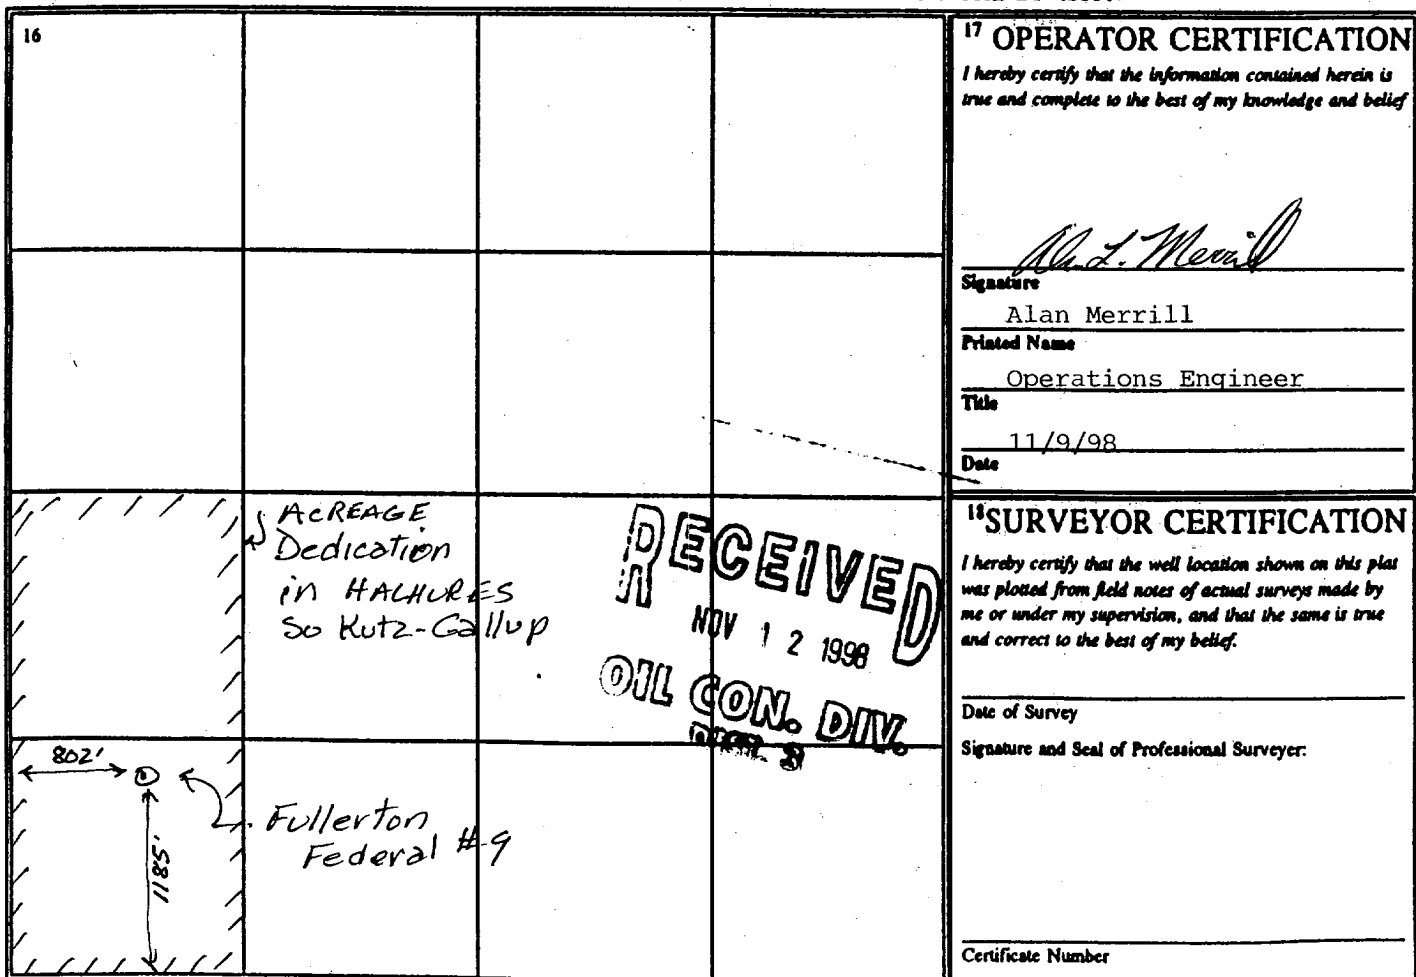 16
ACREAGE
Dedication
in HACHURES
So Kutz-Gallup
RECEIVED
NOV 12 1998
OIL CON. DIV.
DIST. 3
802'
1185'
Fullerton
Federal #9
17 OPERATOR CERTIFICATION
I hereby certify that the information contained herein is
true and complete to the best of my knowledge and belief
Signature
Alan Merrill
Printed Name
Operations Engineer
Title
11/9/98
Date
18 SURVEYOR CERTIFICATION
I hereby certify that the well location shown on this plat
was plotted from field notes of actual surveys made by
me or under my supervision, and that the same is true
and correct to the best of my belief.
Date of Survey
Signature and Seal of Professional Surveyer:
Certificate Number